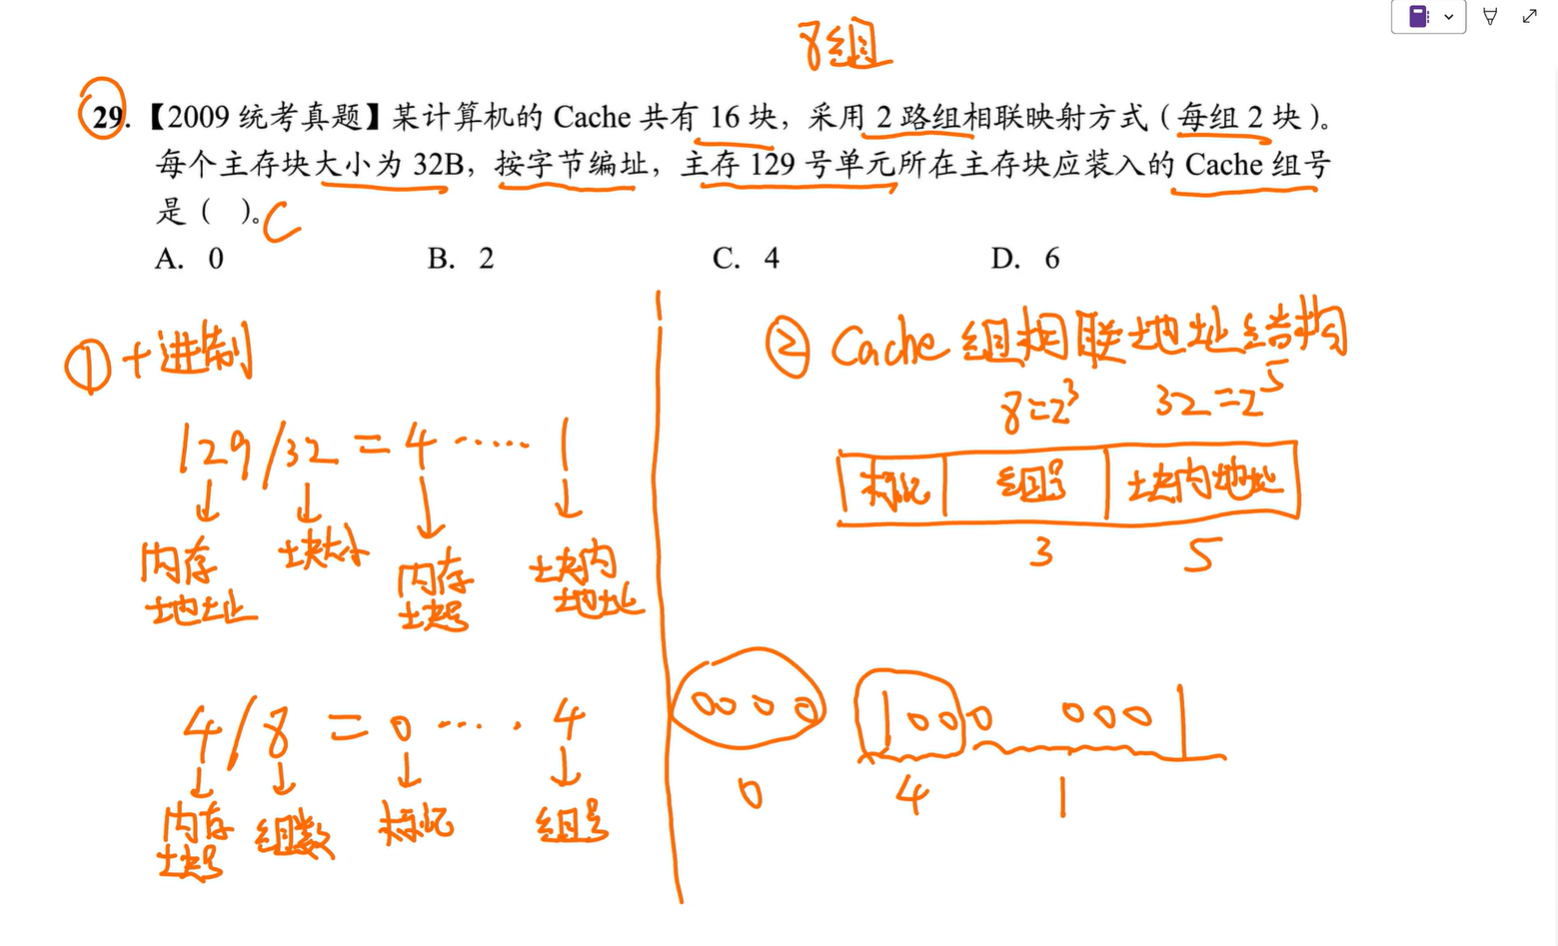 8组
29.【2009 统考真题】某计算机的 Cache 共有 16 块，采用 2 路组相联映射方式（每组 2 块）。
每个主存块大小为 32B，按字节编址，主存 129 号单元所在主存块应装入的 Cache 组号
是（ ）。C
A. 0 B. 2 C. 4 D. 6
① 十进制
129/32 = 4 ······ 1
内存地址 块大小 内存块号 块内地址
4/8 = 0 ···· 4
内存块号 组数 标记 组号
② Cache 组相联地址结构
8=2³ 32=2⁵
标记 组号 块内地址
3 5
0000 1000 0001
0 4 1